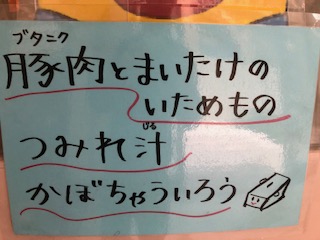 ブタニク
豚肉とまいたけの
いためもの
じる
つみれ汁
かぼちゃういろう